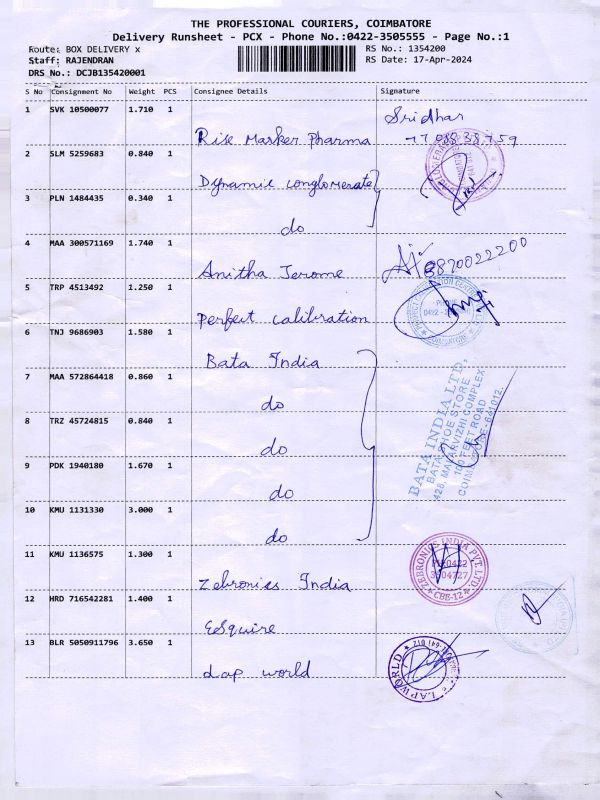 THE PROFESSIONAL COURIERS, COIMBATORE
Delivery Runsheet - PCX - Phone No.:0422-3505555 - Page No.:1
Route: BOX DELIVERY x
RS No.: 1354200
Staff: RAJENDRAN
RS Date: 17-Apr-2024
DRS No.: DCJB135420001
S No Consignment No Weight PCS Consignee Details Signature
1 SVK 10500077 1.710 1
Sridhar
Rise Marker Pharma
2 SLM 5259683 0.840 1
Dynamic conglomerate
3 PLN 1484435 0.340 1
do
4 MAA 300571169 1.740 1
Anitha Jerome
8870022200
5 TRP 4513492 1.250 1
Perfect calibration
6 TNJ 9686903 1.580 1
Bata India
7 MAA 572864418 0.860 1
do
8 TRZ 45724815 0.840 1
do
9 PDK 1940180 1.670 1
do
BATA INDIA LTD,
BATA SHOE STORE
428, MAYARVIZHI COMPLEX
100 FEET ROAD
10 KMU 1131330 3.000 1
do
11 KMU 1136575 1.300 1
Zebronics India
ZEBRONICS INDIA PVT. LTD
CBE-12
12 HRD 716542281 1.400 1
Esquire
13 BLR 5050911796 3.650 1
Lap world
LAP WORLD